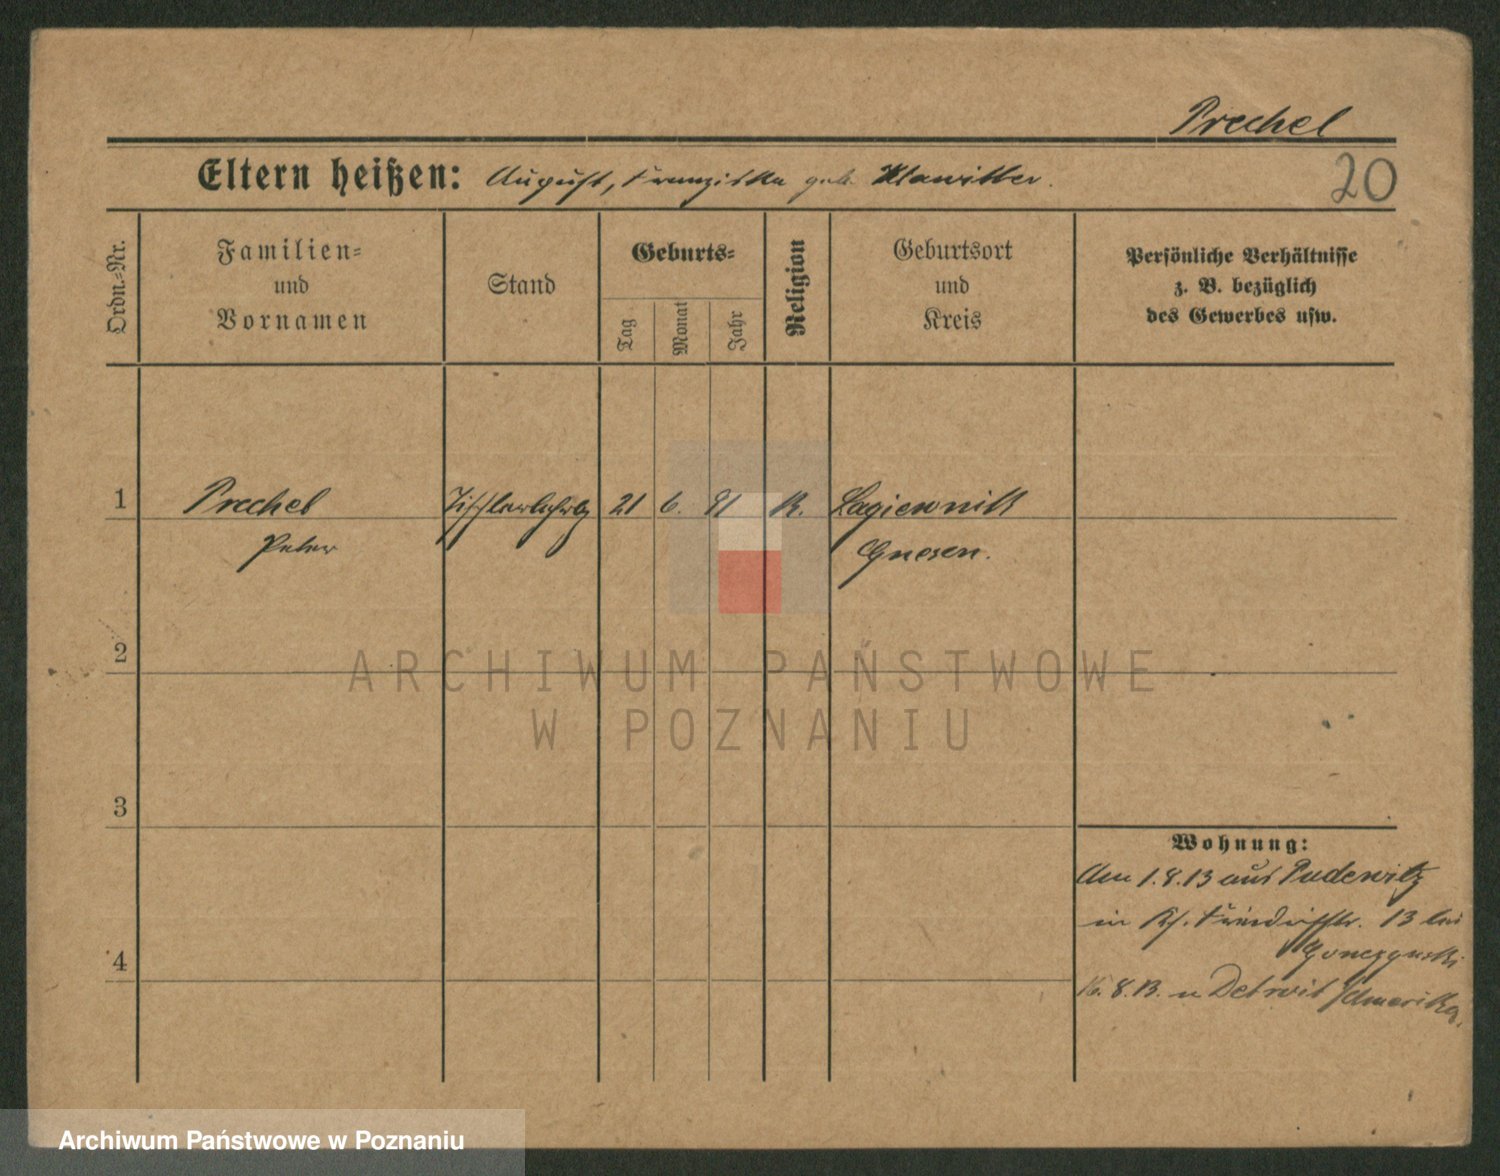 Prechel
Eltern heißen: August, Franziska geb. Klawitter.
20
Ordn.-Nr.
Familien-
und
Vornamen
Stand
Geburts-
Tag
Monat
Jahr
Religion
Geburtsort
und
Kreis
Persönliche Verhältnisse
z. B. bezüglich
des Gewerbes usw.
1 Prechel Tischlerlehrlg 21 6. 91 K. Lagiewnik
Peter Gnesen.
2
ARCHIWUM PAŃSTWOWE
W POZNANIU
3
Wohnung:
Am 1.8.13 aus Pudewitz
in Friedrichstr. 13 bei
4
16.8.13. n Detroit Amerika.
Archiwum Państwowe w Poznaniu